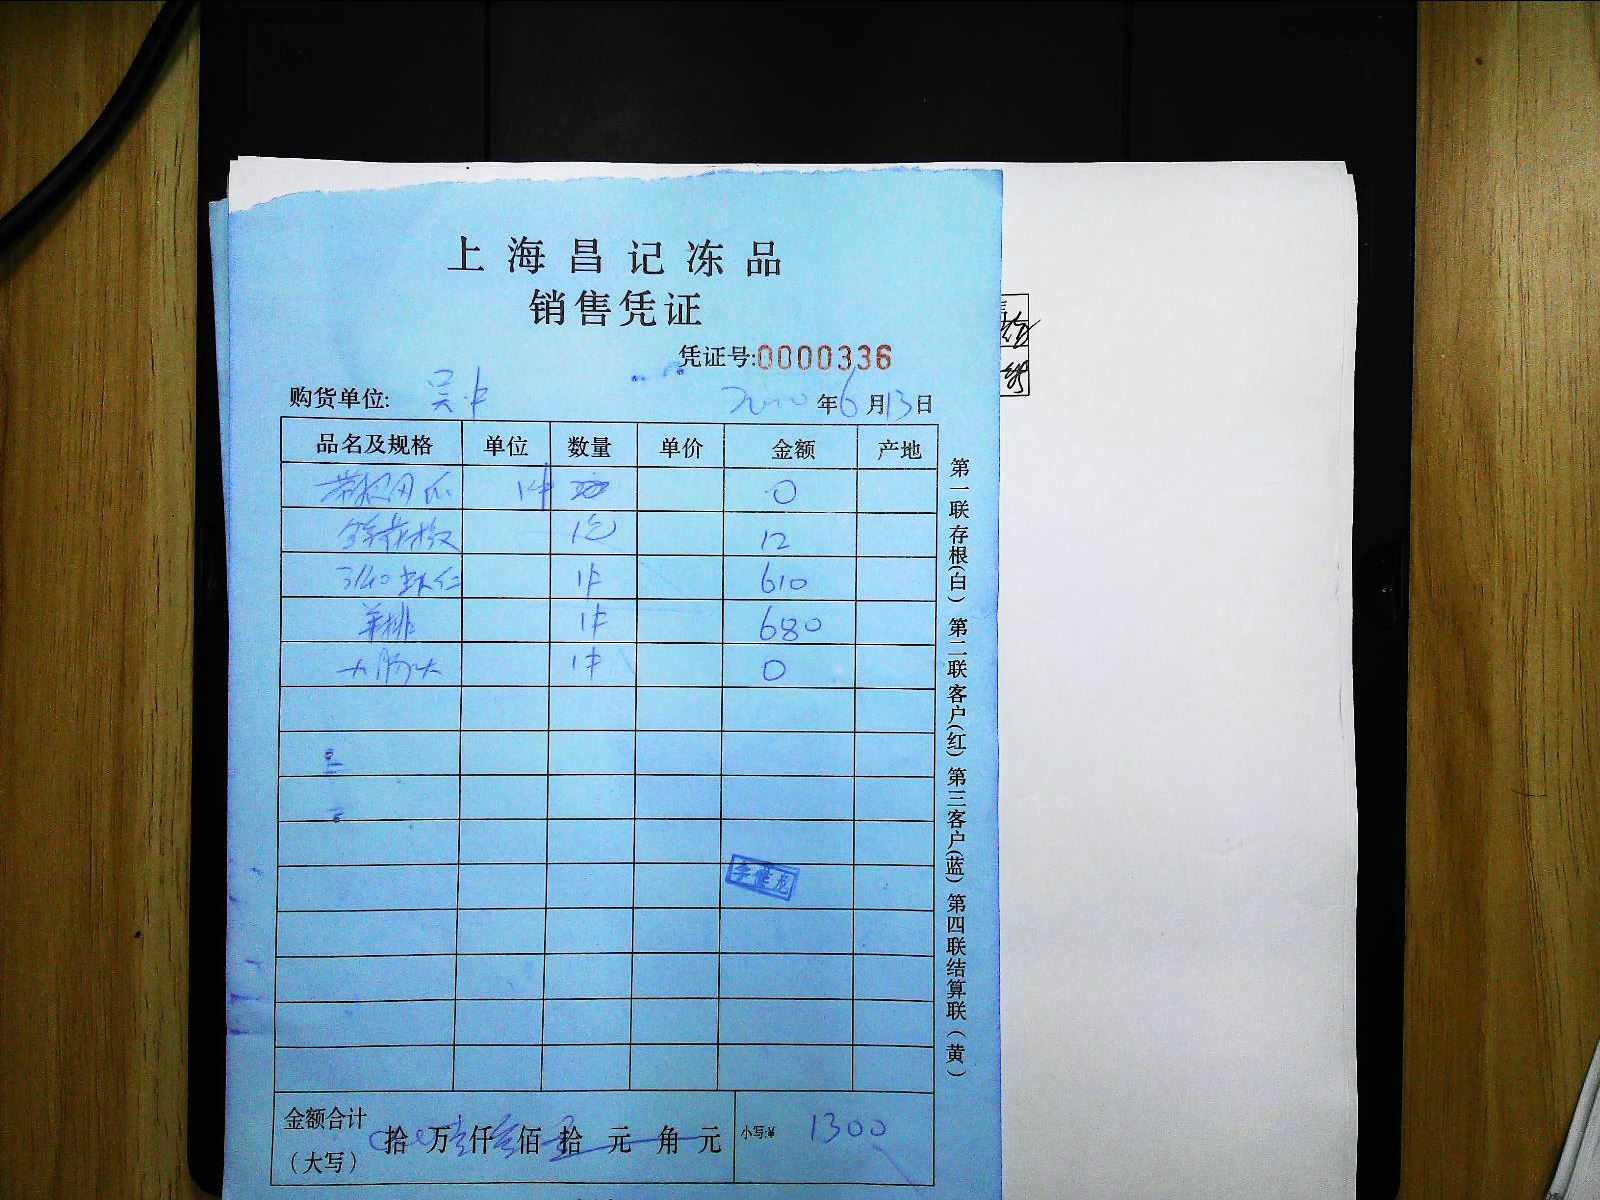 上海昌记冻品
销售凭证
凭证号:0000336
购货单位: 吴
年6月13日
品名及规格 单位 数量 单价 金额 产地
1件 0
1包 12
3140虾仁 1件 610
羊排 1件 680
大肠头 1件 0
金额合计
(大写)
拾 万 仟 佰 拾 元 角 元
小写:¥ 1300
第一联存根(白) 第二联客户(红) 第三客户(蓝) 第四联结算联(黄)